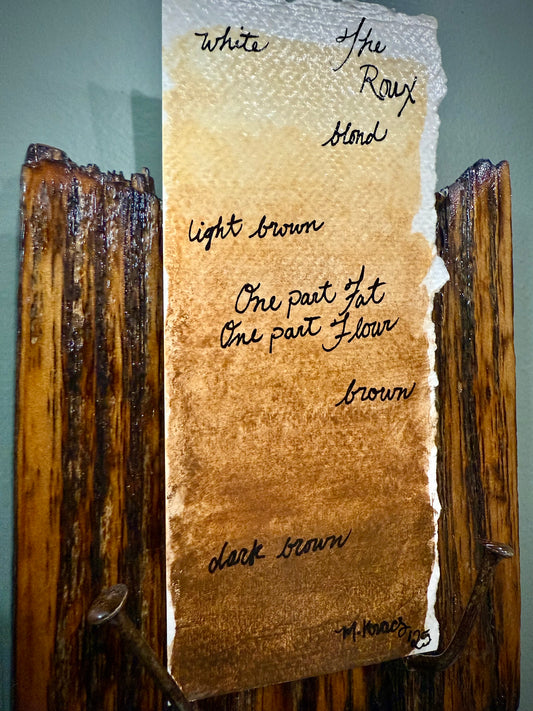 White
The
Roux
blond
light brown
One part Fat
One part Flour
brown
dark brown
M. Kovacs
'25